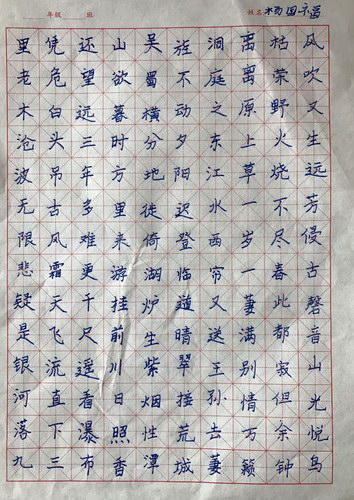 风吹又生远芳侵古磬音山光悦鸟
枯荣野火烧不尽春此都寂但余钟
离离原上草一岁一萋满别情万籁
洞庭之东江水西帘又送王孙去萋
旌不动夕阳迟登临道晴翠接荒城
吴蜀横分地徙倚湖炉生紫烟性潭
山欲暮时方里来游挂前川日照香
还望远三年多难更千尺遥看瀑布
凭危白头吊古风霜天飞流直下三
里老木沧波无限悲疑是银河落九
年级 班
姓名